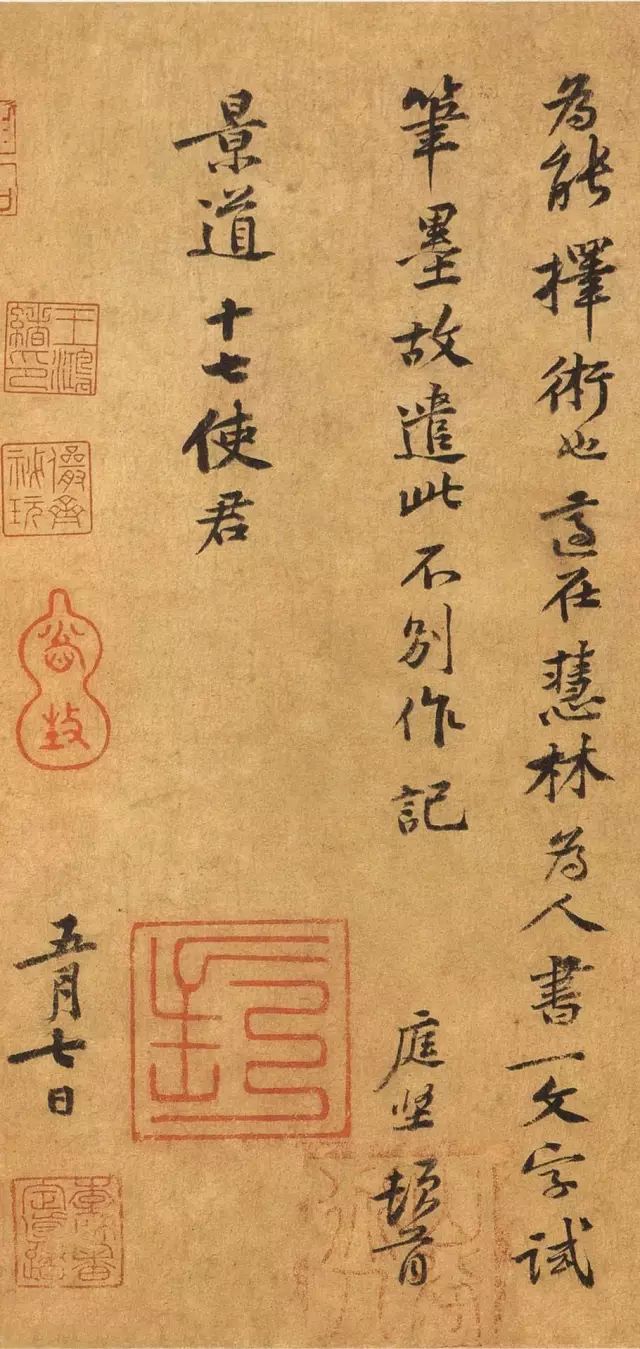 為能擇術也適在慧林為人書一文字試
筆墨故遣此不別作記
庭堅頓首
景道十七使君
五月七日
王鴻緒印
儼齋秘玩